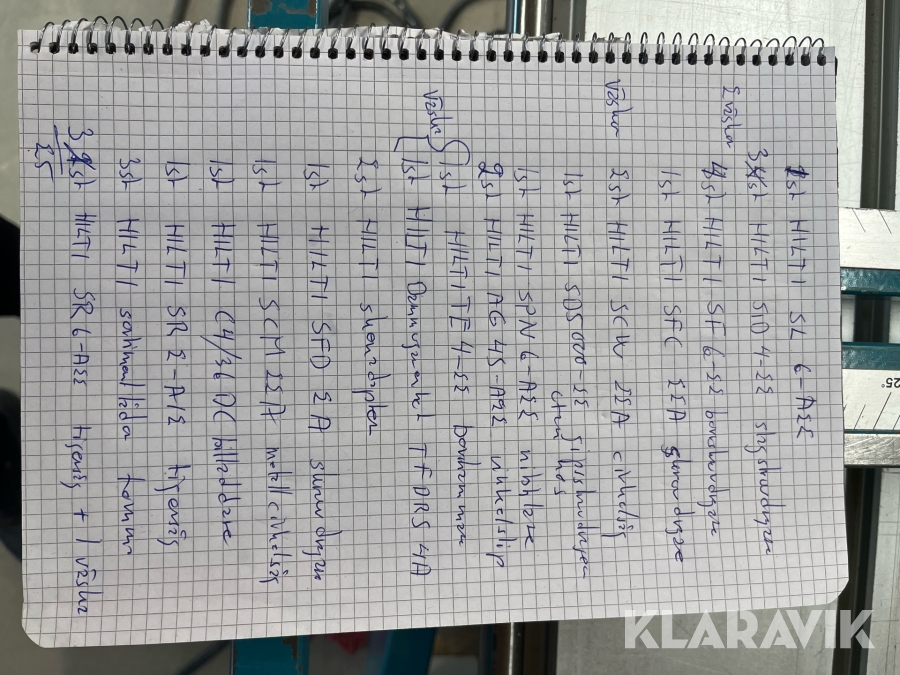 1st HILTI SL 6-A22
3st HILTI SID 4-22 slagskruvdragare
2 väskor
4st HILTI SF 6-22 borrskruvdragare
1st HILTI SFC 22A skruvdragare
Väskor
2st HILTI SCW 22A cirkelsåg
1st HILTI SD5000-22 gipsskruvdragare
utan hus
1st HILTI SPN 6-A22 nibblare
2st HILTI AG 4S-A22 vinkelslip
Väska
1st HILTI TE 4-22 borrhammare
1st HILTI Dammsugare TFDRS 4A
2st HILTI skruvdragare
1st HILTI SFD 2A skruvdragare
1st HILTI SCM 22A metall cirkelsåg
1st HILTI C4/36 DC billaddare
1st HILTI SR 2-A12 tigersåg
3st HILTI
3st HILTI SR 6-A22 tigersåg + 1 väska
25
KLARAVIK
25°